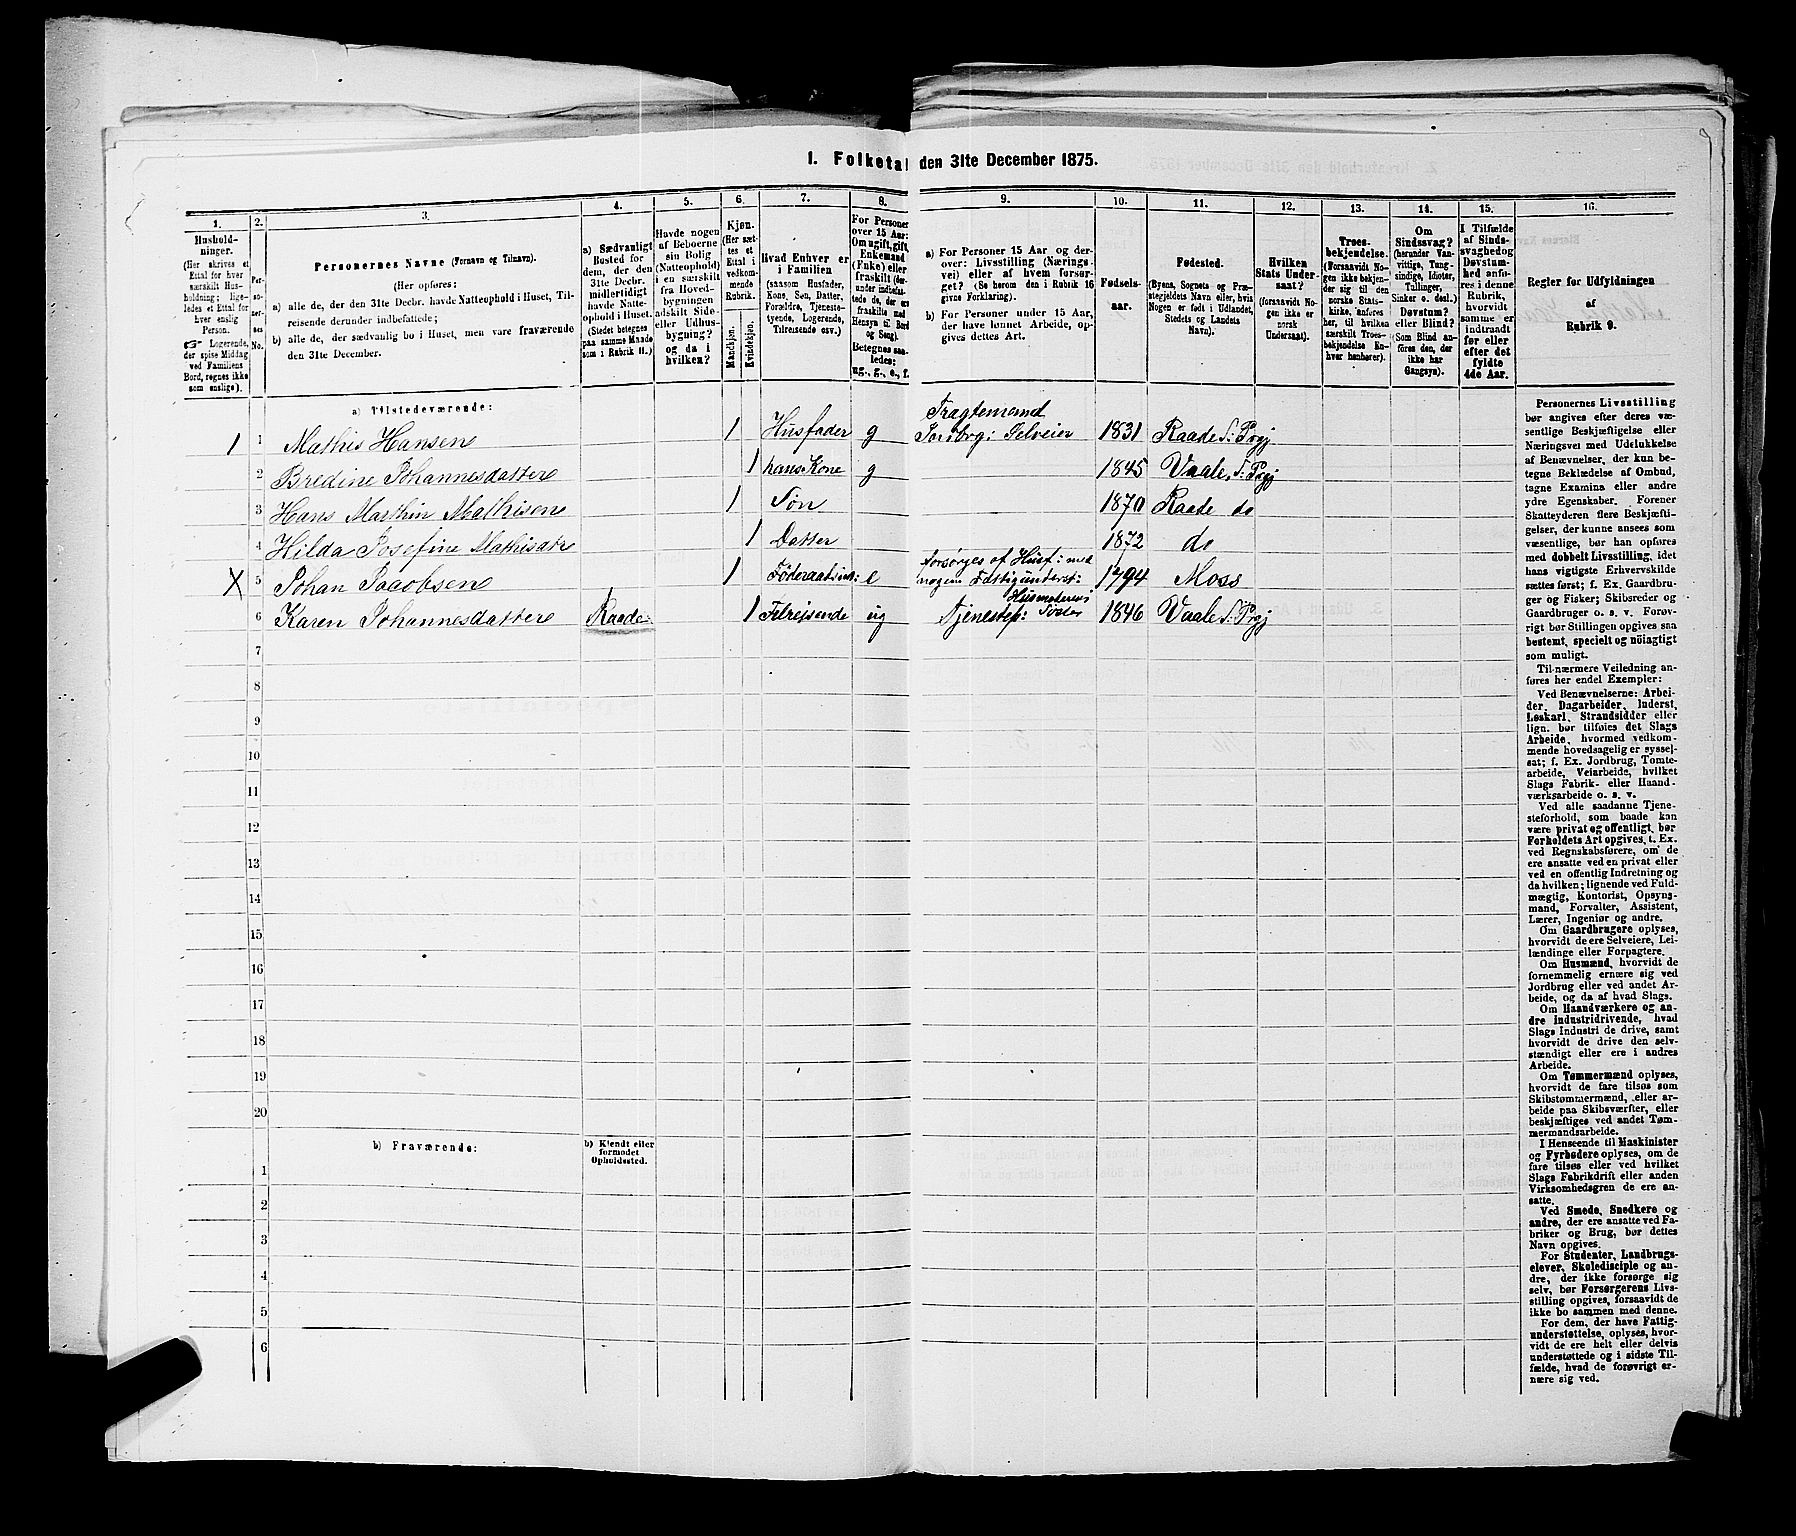 1. Folketal den 31te December 1875.
1.
2.
3.
4.
5.
6.
7.
8.
9.
10.
11.
12.
13.
14.
15.
16.
Husholdninger.
(Her skrives et Ettal for hver særskilt Husholdning; ligeledes et Ettal for hver enslig Person.
Logerende, der spise Middag ved Familiens Bord, regnes ikke som enslige).
Personernes No.
Personernes Navne (Fornavn og Tilnavn).
(Her opføres:
a) alle de, der den 31te Decbr. havde Natteophold i Huset, Tilreisende derunder indbefattede;
b) alle de, der sædvanlig bo i Huset, men vare fraværende den 31te December.
a) Sædvanligt Bosted for dem, der den 31te Decbr. midlertidigt havde Natteophold i Huset.
(Stedet betegnes paa samme Maade som i Rubrik 11.)
Havde nogen af Beboerne sin Bolig (Natteophold) i en særskilt fra Hovedbygningen adskilt Side- eller Udhusbygning? og da i hvilken?
Kjøn.
(Her sættes et Ettal i vedkommende Rubrik.
Mandkjøn.
Kvindekjøn.
Hvad Enhver er i Familien
(saasom Husfader, Kone, Søn, Datter, Forældre, Tjenestetyende, Logerende, Tilreisende osv.)
For Personer over 15 Aar: Om ugift, gift, Enkemand (Enke) eller fraskilt (derunder indbefattede de, der ere fraskilte med Hensyn til Bord og Seng).
Betegnes saaledes:
ug., g., e., f.
a) For Personer 15 Aar og derover: Livsstilling (Næringsvei) eller af hvem forsørget? (Se herom den i Rubrik 16 givne Forklaring).
b) For Personer under 15 Aar, der have lønnet Arbeide, opgives dettes Art.
Fødselsaar.
Fødested.
(Byens, Sognets og Præstegjeldets Navn eller, hvis Nogen er født i Udlandet, Stedets og Landets Navn).
Hvilken Stats Undersaat?
(forsaavidt Nogen ikke er norsk Undersaat).
Troesbekjendelse.
(Forsaavidt Nogen ikke bekjender sig til den norske Statskirke, anføres her, til hvilken særskilt Troesbekjendelse Enhver henhører).
Om Sindssvag? (herunder Vanvittige, Tungsindige, Idioter, Tullinger, Sinker o. desl.)
Døvstum? eller Blind? (Som Blind anføres den, der ikke har Gangsyn).
I Tilfælde af Sindssvaghed og Døvstumhed anføres i denne Rubrik, hvorvidt samme er indtraadt før eller efter det fyldte 4de Aar.
Regler for Udfyldningen af Rubrik 9.
a) Tilstedeværende:
1 1 Mathis Hansen 1 Husfader g Fragtemand Jordbrg: Selveier 1831 Raade S: Prgj
2 Bredine Johannesdatter 1 hans Kone g 1845 Vaale S: Prgj
3 Hans Marthin Mathisen 1 Søn 1870 Raade do
4 Hilda Josefine Mathisdtr 1 Datter 1872 do
X 5 Johan Jacobsen 1 e forsørges af Husf: med nogen Fattigunderst: 1794 Moss
6 Karen Johannesdatter Raade: 1 Tilreisende ug Tjenestep: Husmoderens Søster 1846 Vaale S: Prgj
7
8
9
10
11
12
13
14
15
16
17
18
19
20
b) Fraværende:
b) Kjendt eller formodet Opholdssted.
1
2
3
4
5
6
Personernes Livsstilling
bør angives efter deres væ-
sentlige Beskjæftigelse eller
Næringsvei med Udelukkelse
af Benævnelser, der kun be-
tegne Beklædelse af Ombud,
tagne Examina eller andre
ydre Egenskaber. Forener
Skatteyderen flere Beskjæfti-
gelser, der kunne ansees som
væsentlige, bør han opføres
med dobbelt Livsstilling, idet
hans vigtigste Erhvervskilde
sættes først; f. Ex. Gaardbru-
ger og Fisker; Skibsreder og
Gaardbruger o. s. v. Forøv-
rigt bør Stillingen opgives saa
bestemt, specielt og nøiagtigt
som muligt.
Til nærmere Veiledning an-
føres her endel Exempler:
Ved Benævnelserne: Arbei-
der, Dagarbeider, Inderst,
Løskarl, Strandsidder eller
lign. bør tilføies det Slags
Arbeide, hvormed vedkom-
mende hovedsagelig er syssel-
sat; f. Ex. Jordbrug, Tomte-
arbeide, Veiarbeide, hvilket
Slags Fabrik- eller Haand-
værksarbeide o. s. v.
Ved alle saadanne Tjene-
steforhold, som baade kan
være privat og offentligt, bør
Forholdets Art opgives, t. Ex.
ved Regnskabsførere, om de
ere ansatte ved en privat eller
ved en offentlig Indretning og
da hvilken; lignende ved Fuld-
mægtig, Kontorist, Opsyns-
mand, Forvalter, Assistent,
Lærer, Ingeniør og andre.
Om Gaardbrugere oplyses,
hvorvidt de ere Selveiere, Lei-
lændinge eller Forpagtere.
Om Husmænd, hvorvidt de
fornemmelig ernære sig ved
Jordbrug eller ved andet Ar-
beide, og da af hvad Slags.
Om Haandværkere og an-
dre Industridrivende, hvad
Slags Industri de drive, samt
hvorvidt de drive den selv-
stændigt eller ere i andres
Arbeide.
Om Tømmermænd oplyses,
hvorvidt de fare tilsøs som
Skibstømmermænd, eller ar-
beide paa Skibsværfter, eller
beskjæftiges ved andet Tøm-
mermandsarbeide.
I Henseende til Maskinister
og Fyrbødere oplyses, om de
fare tilsøs eller ved hvilket
Slags Fabrikdrift eller anden
Virksomhedsgren de ere an-
satte.
Ved Smede, Snedkere og
andre, der ere ansatte ved Fa-
briker og Brug, bør dettes
Navn opgives.
For Studenter, Landbrugs-
elever, Skoledisciple og an-
dre, der ikke forsørge sig
selv, bør Forsørgerens Livs-
stilling opgives, forsaavidt de
ikke bo sammen med denne.
For dem, der have Fattig-
understøttelse, oplyses, hvor-
vidt de ere helt eller delvis
understøttede og i sidste Til-
fælde, hvad de forøvrigt er-
nære sig ved.